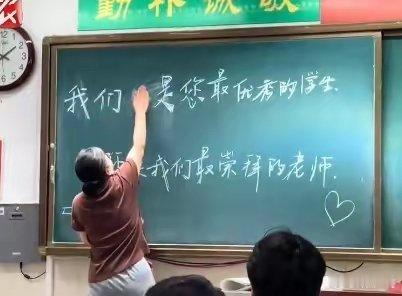 勤朴诚敬
我们 是您最优秀的学生.
我们最崇拜的老师.